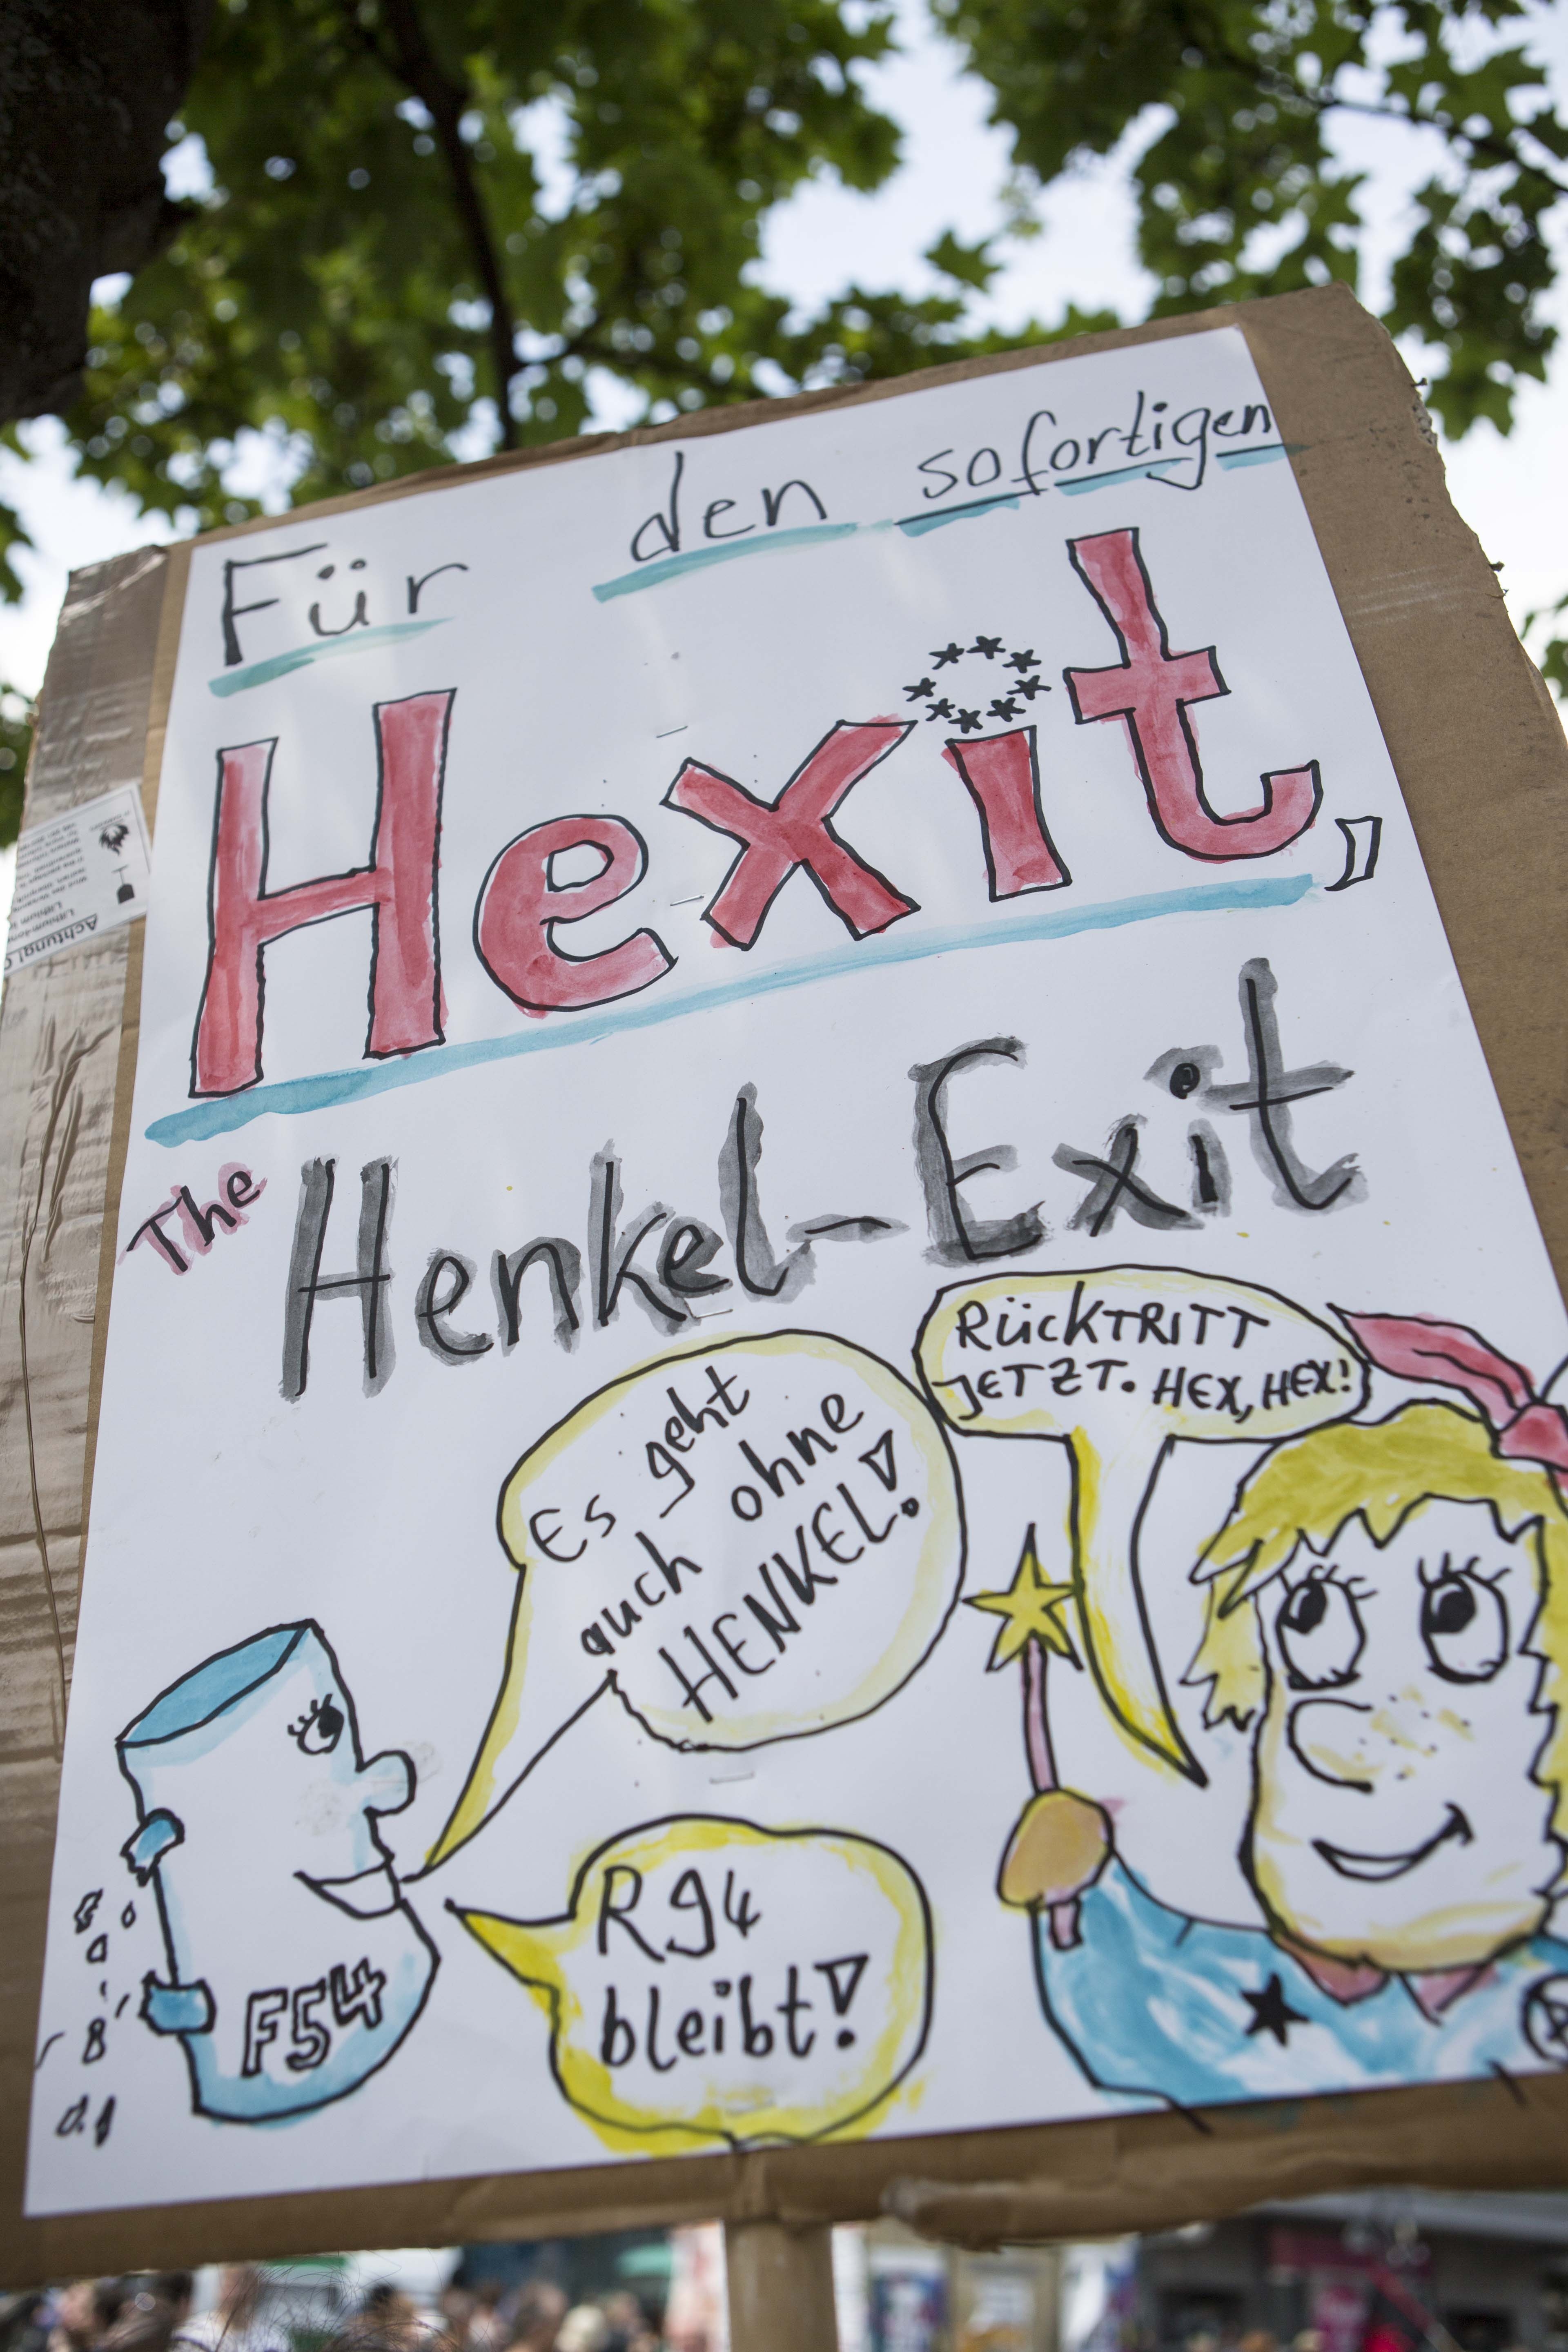 Für den sofortigen
Hexit,
The Henkel-Exit
RÜCKTRITT
JETZT. HEX, HEX!
Es geht
auch ohne
HENKEL!
R94
bleibt!
F54
Achtung!
Lithium